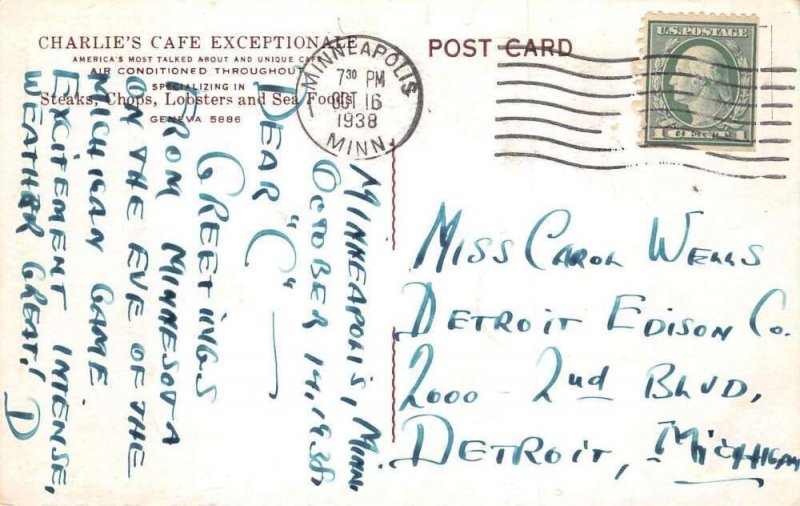 CHARLIE'S CAFE EXCEPTIONALE
AMERICA'S MOST TALKED ABOUT AND UNIQUE CAFE
AIR CONDITIONED THROUGHOUT
SPECIALIZING IN
Steaks, Chops, Lobsters and Sea Foods
GENEVA 5886
POST CARD
MINNEAPOLIS
7 30 PM
OCT 16
1938
MINN.
U.S. POSTAGE
1 CENT 1
MINNEAPOLIS, MINN.
OCTOBER 14, 1938
DEAR "C" —
GREETINGS
FROM MINNESOTA
ON THE EVE OF THE
MICHIGAN GAME.
EXCITEMENT INTENSE,
WEATHER GREAT! D
MISS CAROL WELLS
DETROIT EDISON CO.
2000 - 2nd BLVD,
DETROIT, MICHIGAN